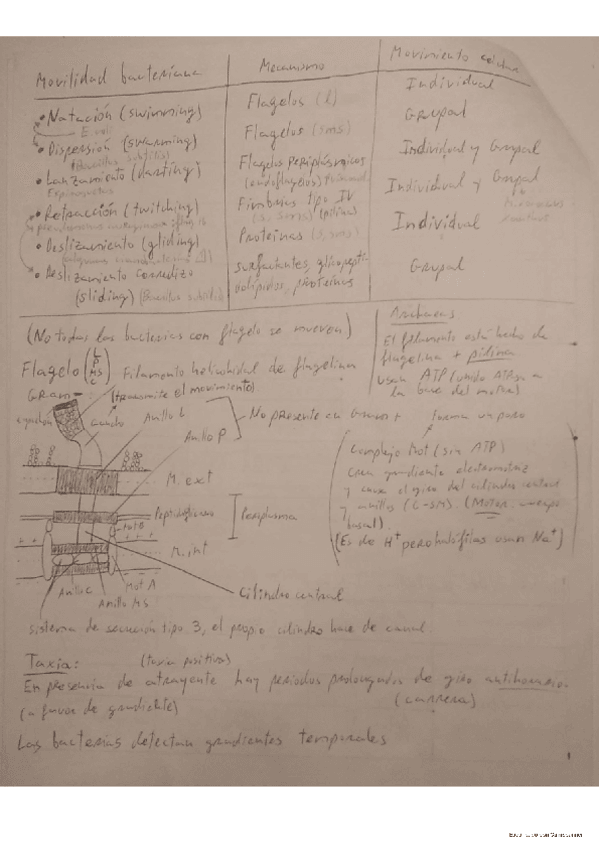 Movilidad bacteriana | Mecanismo | Movimiento celular
• Natación (swimming) | Flagelos (l) | Individual
E. coli
• Dispersión (swarming) | Flagelos (sms) | Grupal
Bacillus subtilis
• Lanzamiento (darting) | Flagelos periplásmicos (endoflagelos) | Individual y Grupal
Espiroquetas
• Retracción (twitching) | Fimbrias tipo IV (pilina) | Individual y Grupal
• Deslizamiento (gliding) | Proteínas | Individual
• Deslizamiento corredizo | surfactantes, | Grupal
(sliding) (Bacillus subtilis) | proteínas
(No todas las bacterias con flagelo se mueven)
Flagelo (L P MS C) Filamento helicoidal de flagelina
(transmite el movimiento)
Gram-
gancho
Anillo L
Anillo P
No presente en Gram+
M. ext
Peptidoglicano
Periplasma
Mot B
M. int
Mot A
Anillo C
Anillo MS
Cilindro central
Archaeas
El filamento está hecho de
flagelina + pilina
Usan ATP (unido ATPasa a
la base del motor)
Forma un poro
Complejo Mot (sin ATP)
Crea gradiente electromotriz
y causa el giro del cilindro central
y anillos (C-SM). (Motor cuerpo
basal).
(Es de H⁺ pero halófilas usan Na⁺)
sistema de secreción tipo 3, el propio cilindro hace de canal
Taxia: (taxia positiva)
En presencia de atrayente hay periodos prolongados de giro antihorario.
(a favor de gradiente) (carrera)
Las bacterias detectan gradientes temporales